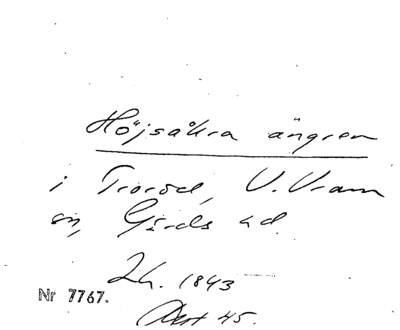 Höjsåkra ängren
i Troröd, V. Vram
sn, Gärds hd.
Lh. 1843
Nr 7767.
Avst 45.